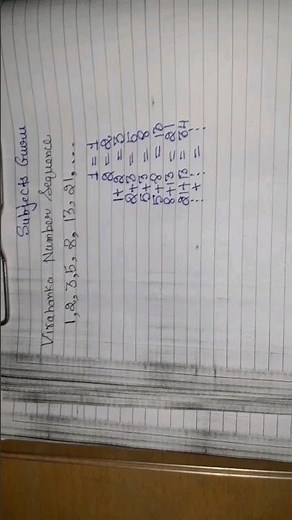 Subjects Guru
Virahanka Number Sequence
1, 2, 3, 5, 8, 13, 21, ...
1 = 1
2 = 2
1+2 = 3
2+3 = 5
5+3 = 8
5+8 = 13
8+13 = 21
21+13 = 34
⋮ + ⋮ = ⋮